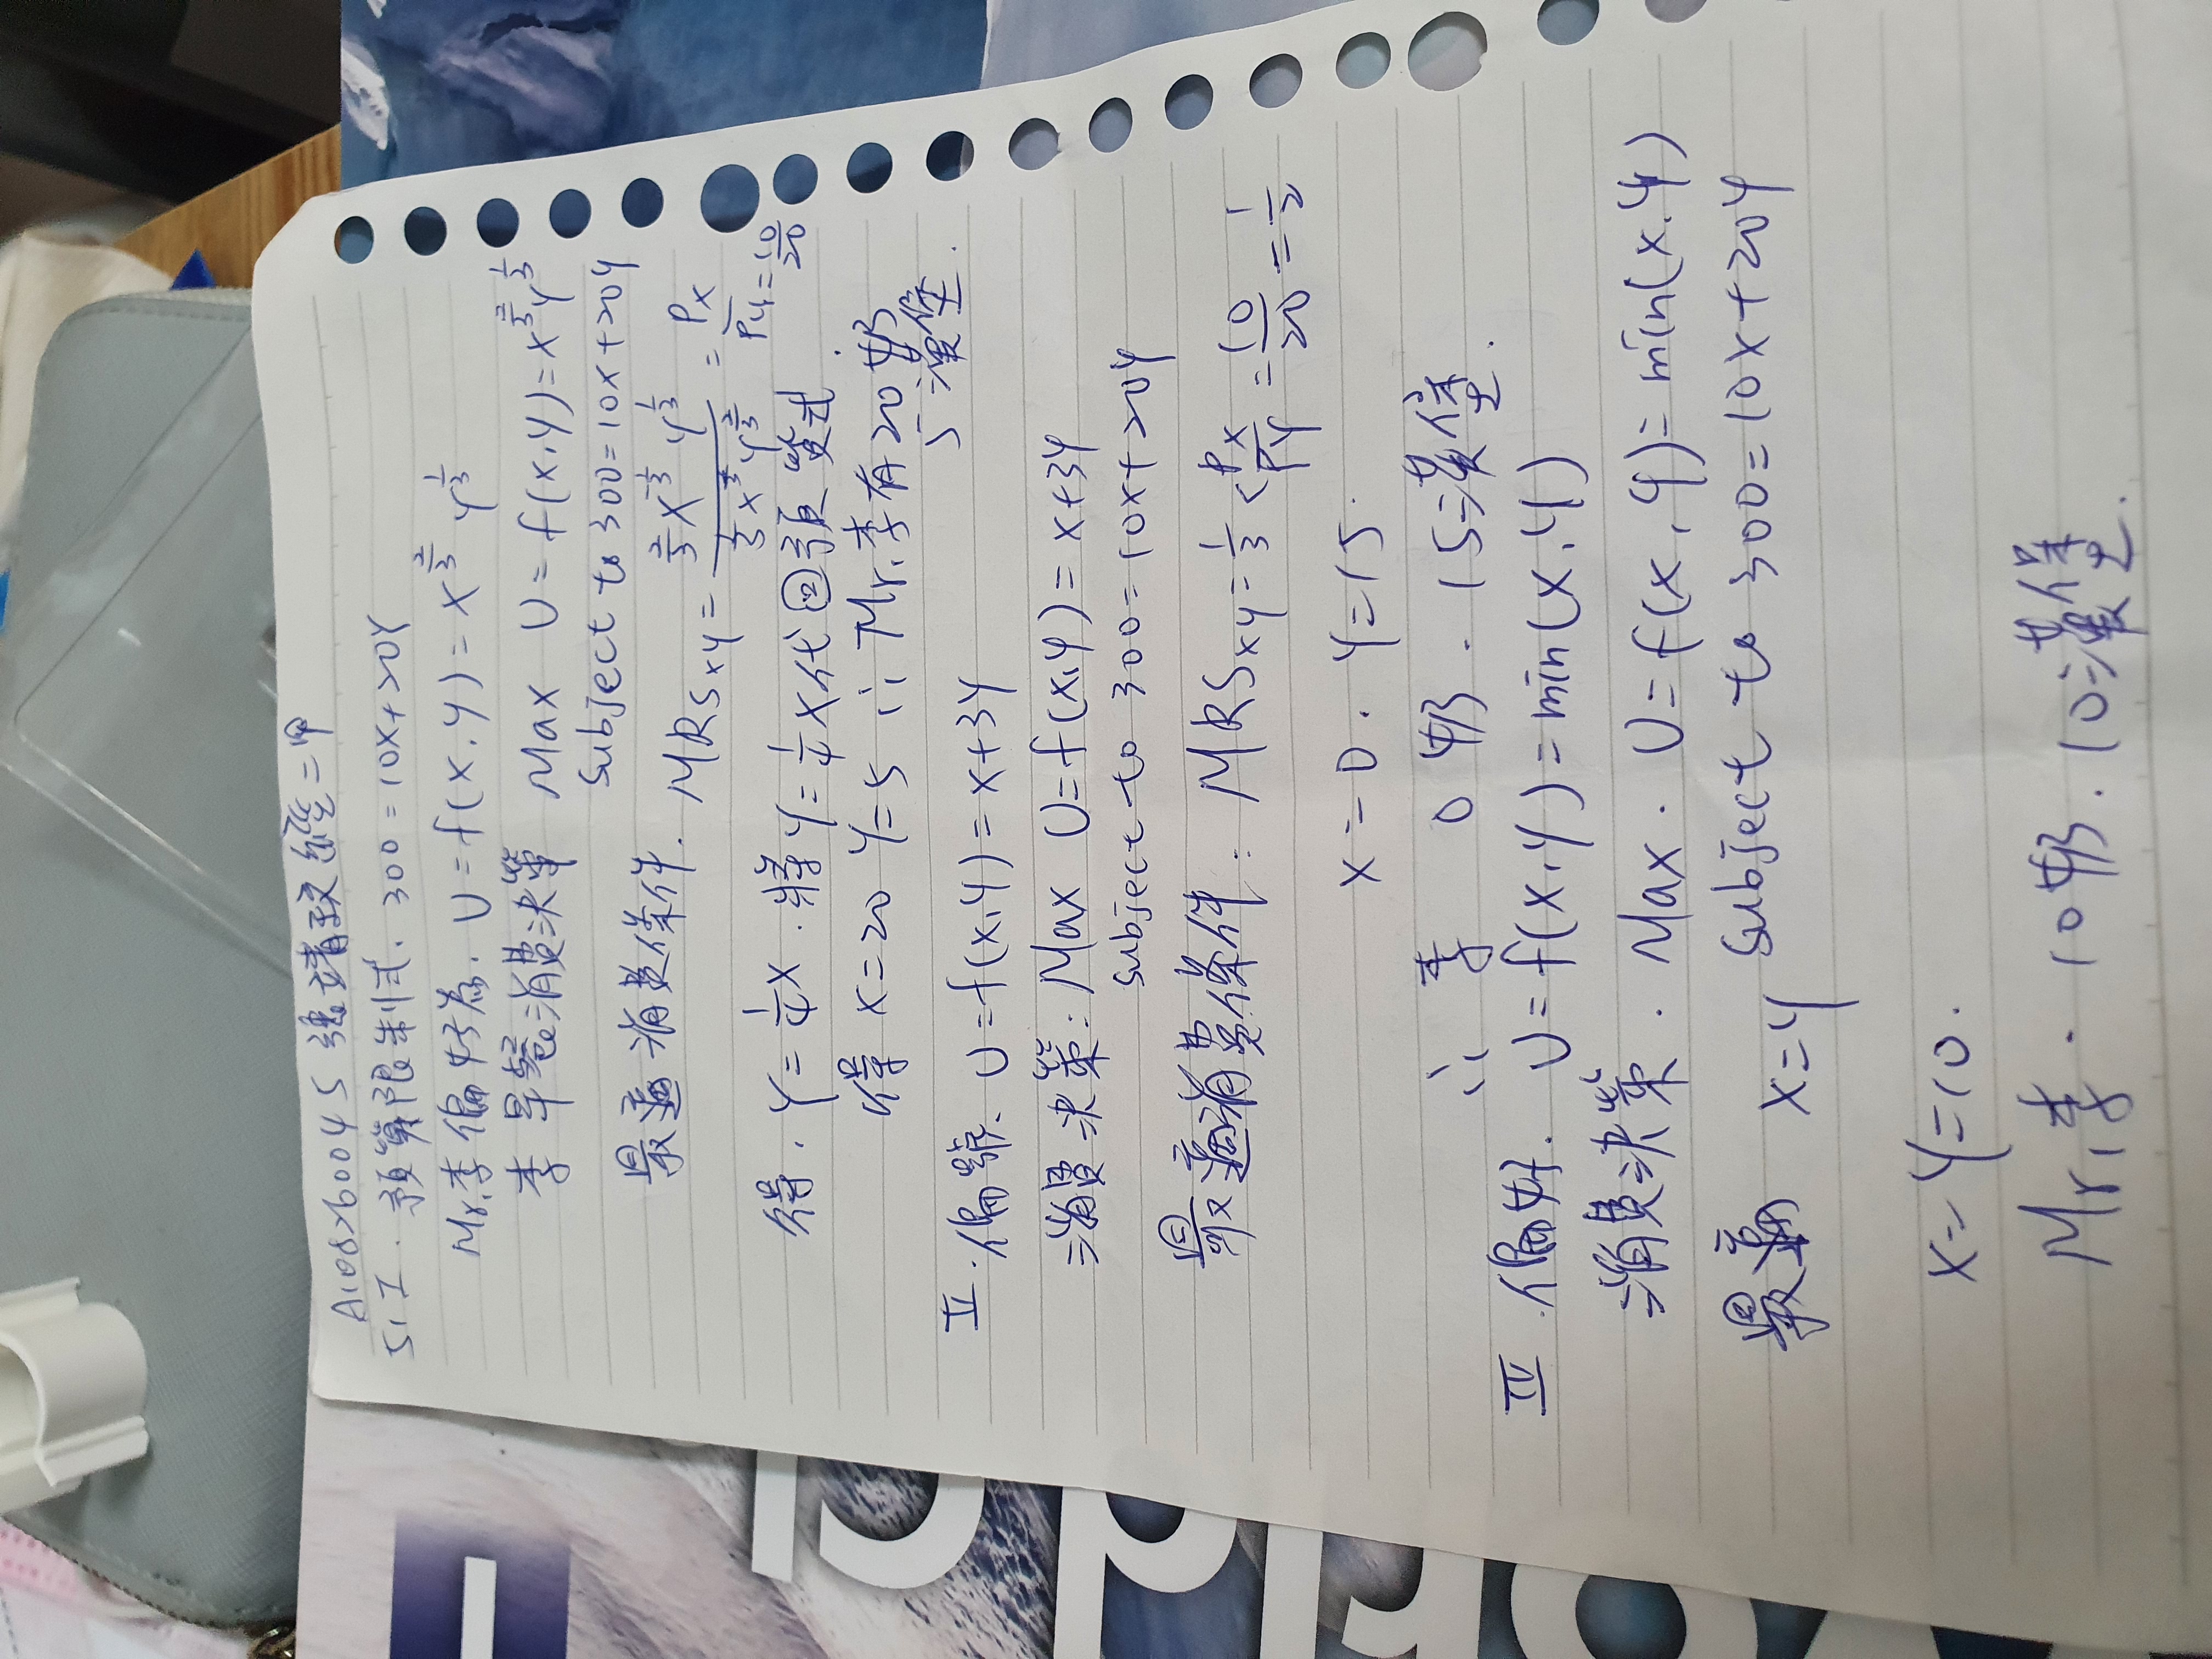 A108260045 張靖玟 經二甲
5.1 I. 預算限制式. 300=10X+20Y
Mr.李偏好為. U=f(X,Y)=X^{2/3} Y^{1/3}
李早餐消費決策 Max U=f(X,Y)=X^{2/3}Y^{1/3}
Subject to 300=10X+20Y
最適消費條件. MRSxy = \frac{\frac{2}{3}X^{-\frac{1}{3}} Y^{\frac{1}{3}}}{\frac{1}{3}X^{\frac{2}{3}} Y^{\frac{2}{3}}} = \frac{Px}{Py} = \frac{10}{20}
得. Y=\frac{1}{4}X. 將Y=\frac{1}{4}X代回預算式.
得 X=20 Y=5 ∴ Mr.李有20奶
5漢堡.
II. 偏號. U=f(X,Y)=X+3Y
消費決策: Max U=f(X,Y)=X+3Y
Subject to 300=10X+20Y
最適消費條件: MRSxy=\frac{1}{3}<\frac{Px}{Py}=\frac{10}{20}=\frac{1}{2}
X=0. Y=15.
∴ 李 0奶. 15漢堡.
III. 偏好. U=f(X,Y)=min(X,Y)
消費決策. Max. U=f(X,Y)=min(X,Y)
Subject to 300=10X+20Y
最適 X=Y
X=Y=10.
Mr.李. 10奶. 10漢堡.